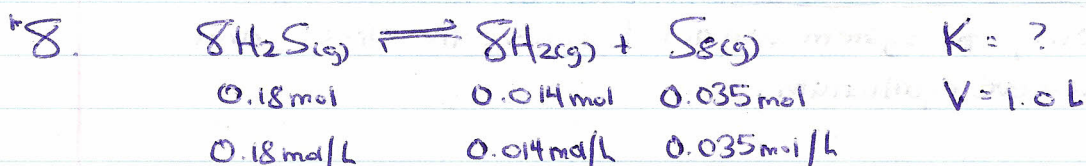 *8. 8H₂S(g) ⇌ 8H₂(g) + S₈(g) K = ?
0.18 mol 0.014 mol 0.035 mol V = 1.0 L
0.18 mol/L 0.014 mol/L 0.035 mol/L